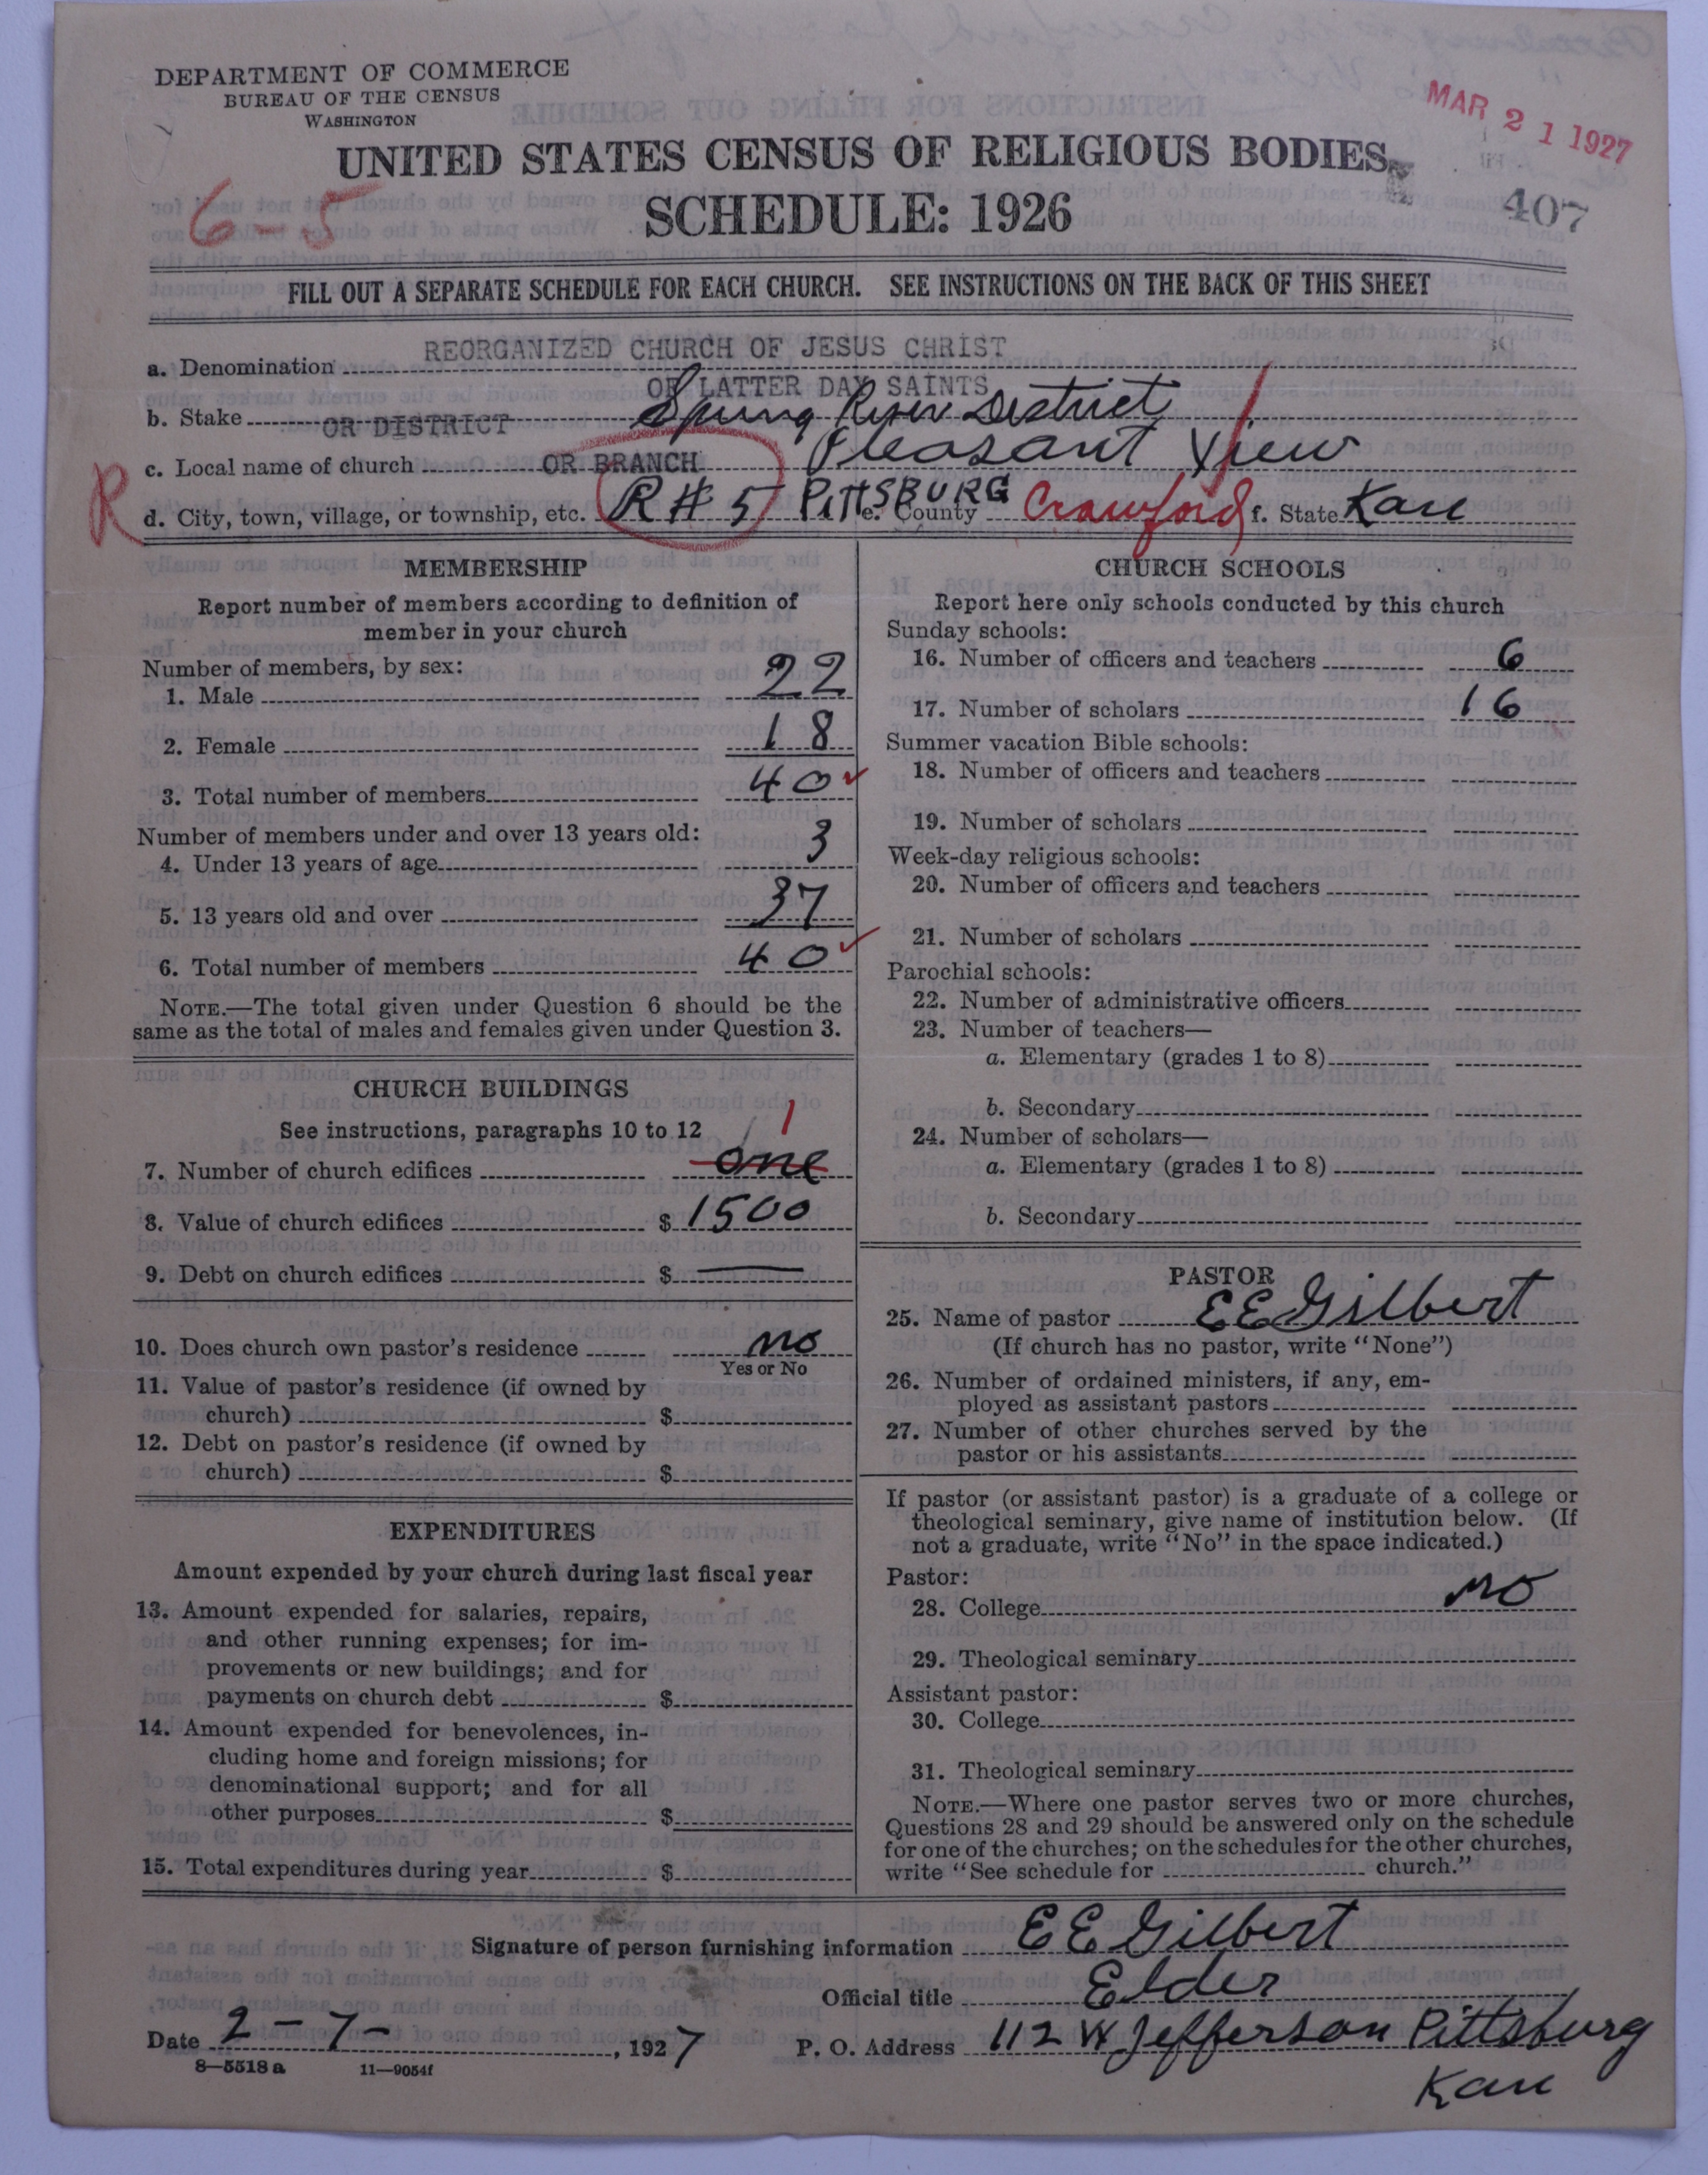 DEPARTMENT OF COMMERCE
BUREAU OF THE CENSUS
WASHINGTON
MAR 21 1927
UNITED STATES CENSUS OF RELIGIOUS BODIES
6-5
SCHEDULE: 1926
407
FILL OUT A SEPARATE SCHEDULE FOR EACH CHURCH. SEE INSTRUCTIONS ON THE BACK OF THIS SHEET
a. Denomination REORGANIZED CHURCH OF JESUS CHRIST
OF LATTER DAY SAINTS
b. Stake OR DISTRICT Spring River District
c. Local name of church OR BRANCH Pleasant View
R
d. City, town, village, or township, etc. R#5 PittSBURG e. County Crawford f. State Kan
MEMBERSHIP
Report number of members according to definition of
member in your church
Number of members, by sex:
1. Male 22
2. Female 18
3. Total number of members 40
Number of members under and over 13 years old:
4. Under 13 years of age 3
5. 13 years old and over 37
6. Total number of members 40
NOTE.—The total given under Question 6 should be the
same as the total of males and females given under Question 3.
CHURCH BUILDINGS
See instructions, paragraphs 10 to 12
1
7. Number of church edifices one
8. Value of church edifices $ 1500
9. Debt on church edifices $ —
10. Does church own pastor's residence no
Yes or No
11. Value of pastor's residence (if owned by
church) $
12. Debt on pastor's residence (if owned by
church) $
EXPENDITURES
Amount expended by your church during last fiscal year
13. Amount expended for salaries, repairs,
and other running expenses; for im-
provements or new buildings; and for
payments on church debt $
14. Amount expended for benevolences, in-
cluding home and foreign missions; for
denominational support; and for all
other purposes $
15. Total expenditures during year $
CHURCH SCHOOLS
Report here only schools conducted by this church
Sunday schools:
16. Number of officers and teachers 6
17. Number of scholars 16
Summer vacation Bible schools:
18. Number of officers and teachers
19. Number of scholars
Week-day religious schools:
20. Number of officers and teachers
21. Number of scholars
Parochial schools:
22. Number of administrative officers
23. Number of teachers—
a. Elementary (grades 1 to 8)
b. Secondary
24. Number of scholars—
a. Elementary (grades 1 to 8)
b. Secondary
PASTOR
25. Name of pastor E E Gilbert
(If church has no pastor, write "None")
26. Number of ordained ministers, if any, em-
ployed as assistant pastors
27. Number of other churches served by the
pastor or his assistants
If pastor (or assistant pastor) is a graduate of a college or
theological seminary, give name of institution below. (If
not a graduate, write "No" in the space indicated.)
Pastor:
28. College no
29. Theological seminary
Assistant pastor:
30. College
31. Theological seminary
NOTE.—Where one pastor serves two or more churches,
Questions 28 and 29 should be answered only on the schedule
for one of the churches; on the schedules for the other churches,
write "See schedule for church."
Signature of person furnishing information E E Gilbert
Official title Elder
Date 2-7-, 1927 P. O. Address 112 W Jefferson Pittsburg
Kan
8—5518 a 11—9054f